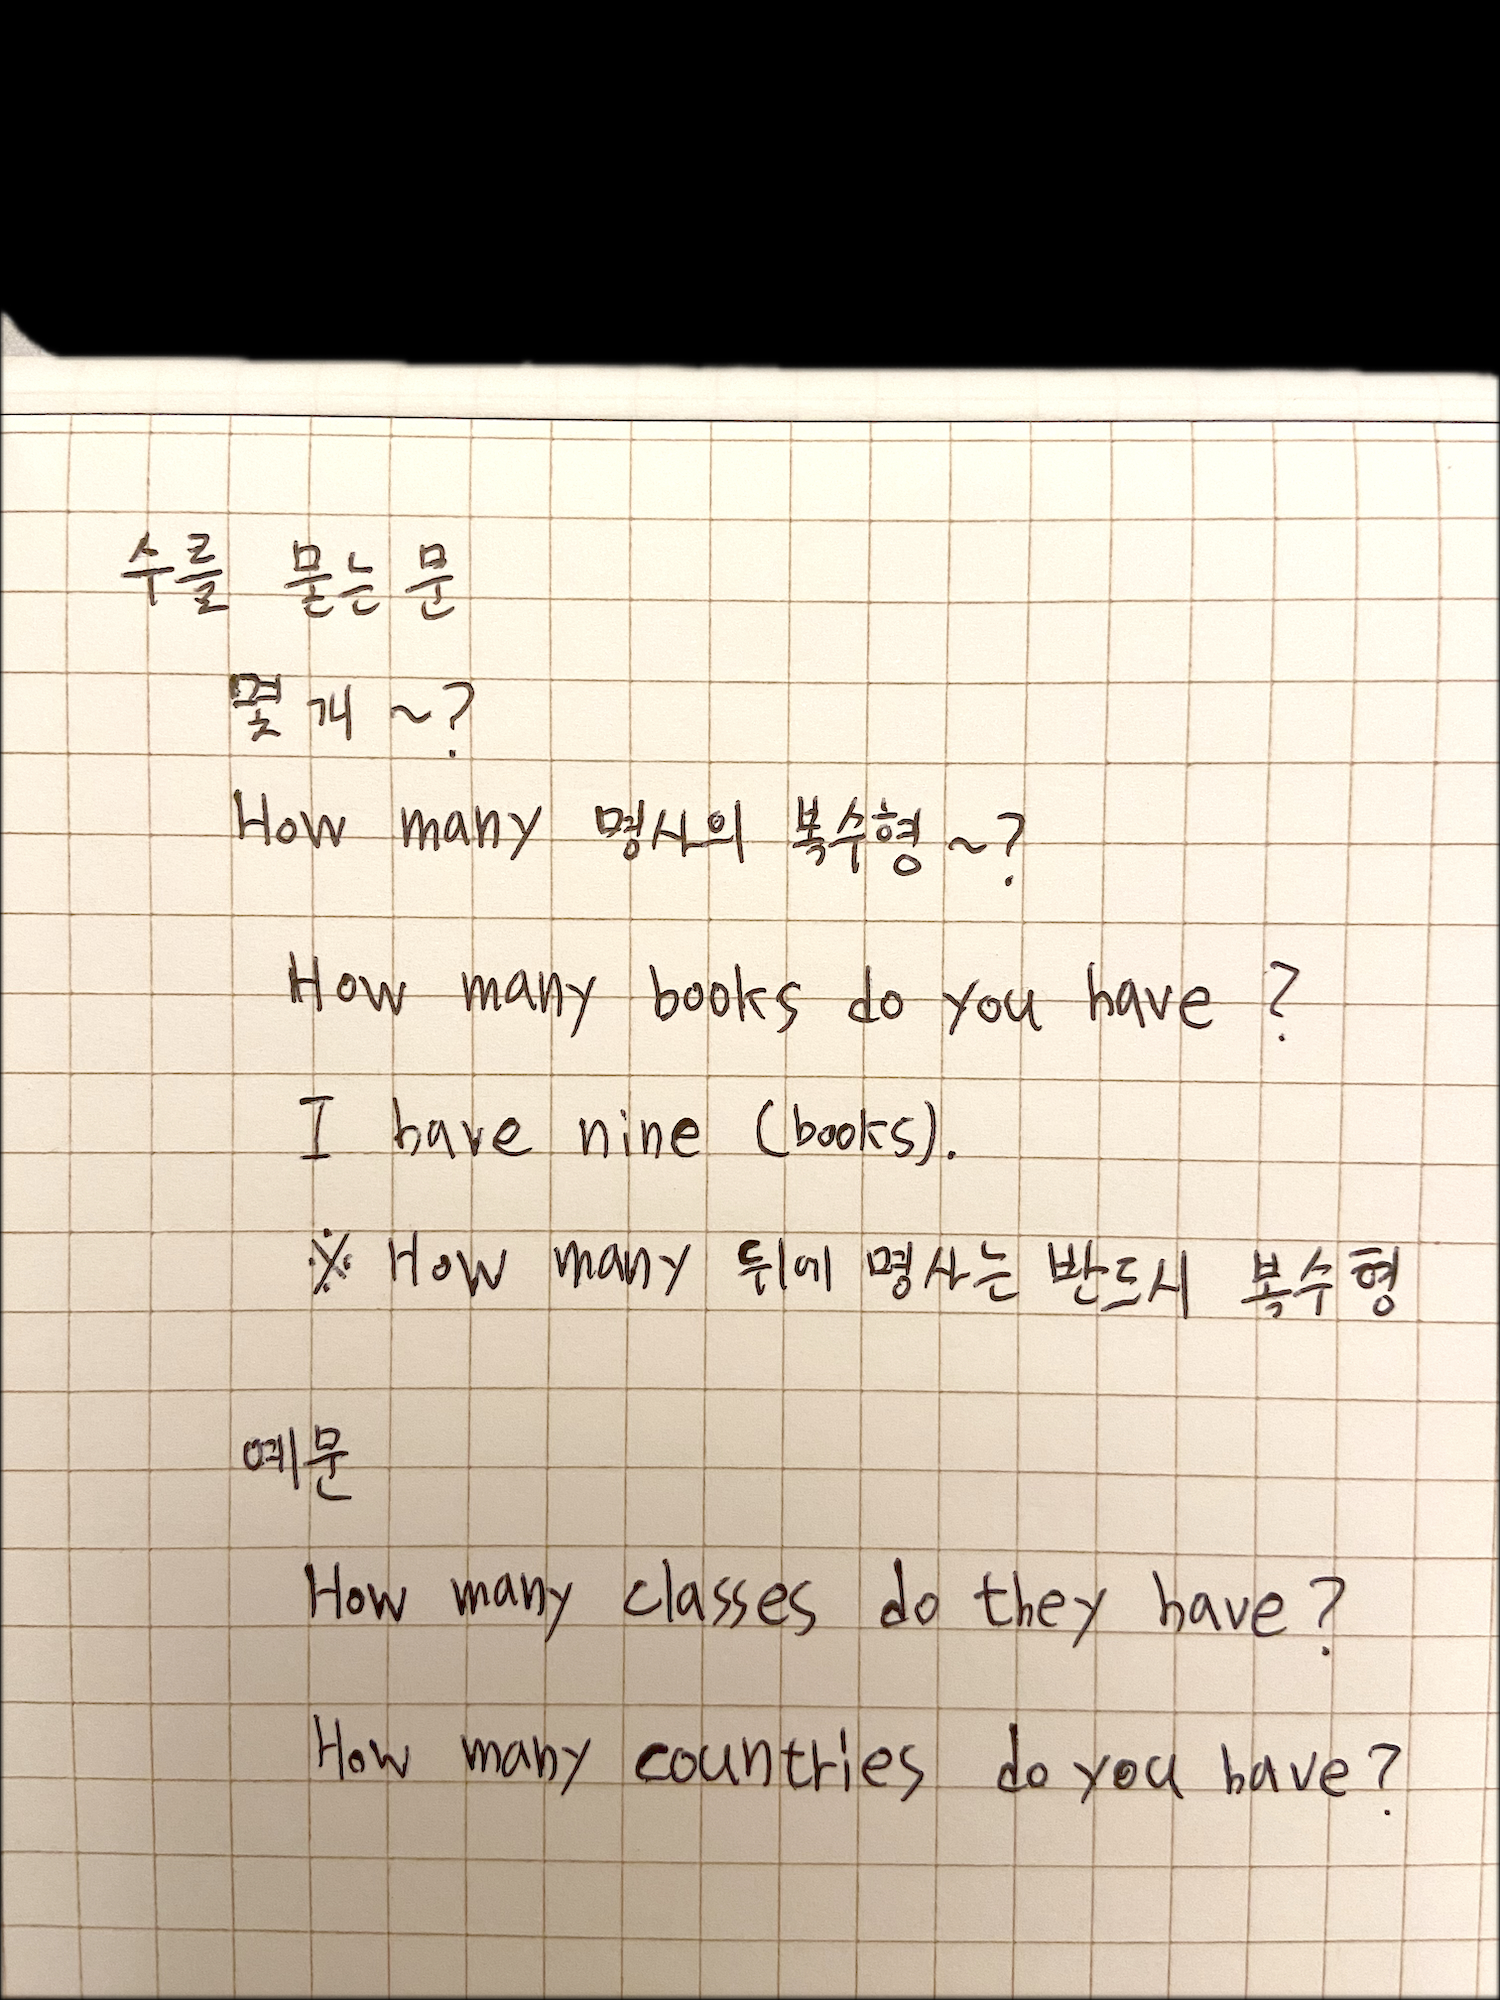 수를 묻는 문
몇 개 ~?
How many 명사의 복수형 ~?
How many books do you have ?
I have nine (books).
※ How many 뒤에 명사는 반드시 복수형
예문
How many classes do they have?
How many countries do you have?